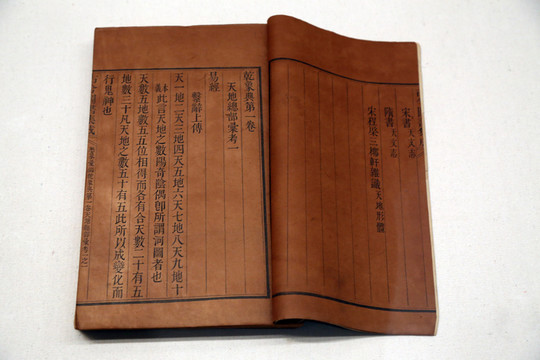 宋書天文志
隋書天文志
宋程棨三柳軒雜識天地形體
乾象典第一卷
天地總部彙考一
易經
繫辭上傳
天一地二天三地四天五地六天七地八天九地十
本義此言天地之數陽奇陰偶卽所謂河圖者也
天數五地數五五位相得而各有合天數二十有五
地數三十凡天地之數五十有五此所以成變化而
行鬼神也